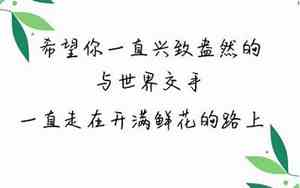 希望你一直兴致盎然的
与世界交手
一直走在开满鲜花的路上